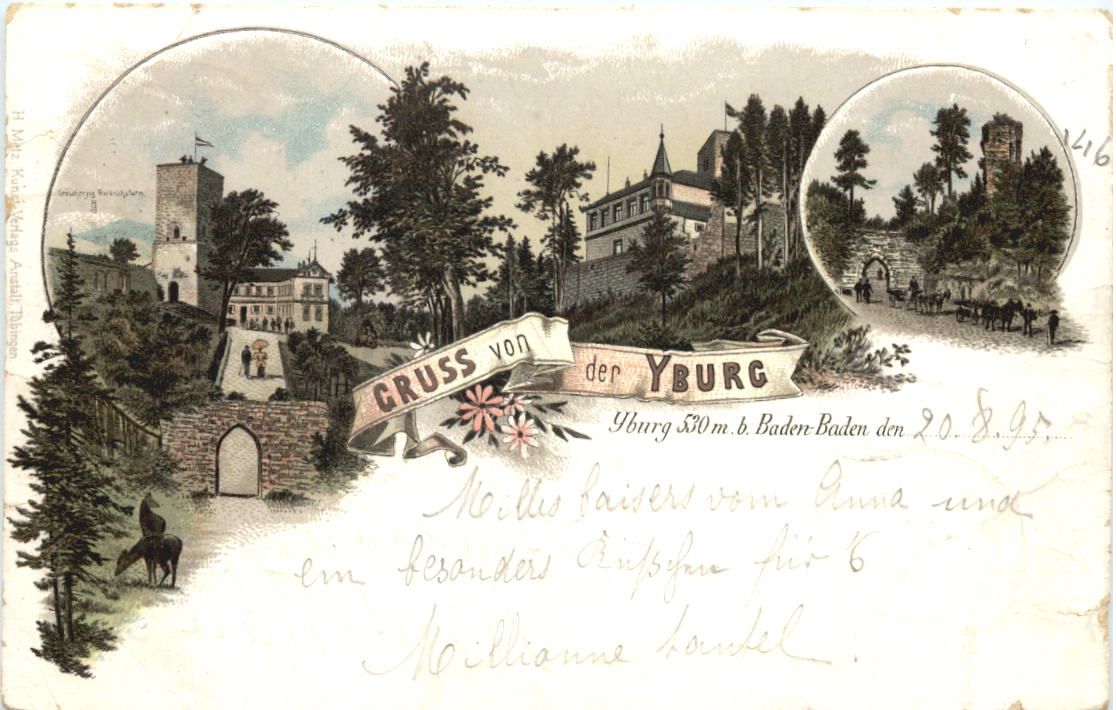 H. Metz, Kunst-Verlags-Anstalt, Tübingen.
Grossherzog Friedrichsturm.
GRUSS von der YBURG
Yburg 530 m. b. Baden-Baden den 20. 8. 95.
Milles baisers vom Anna und
ein besonders Küßchen für
Millionne tantel.